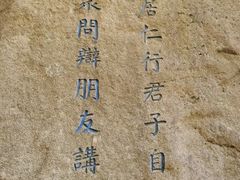 居仁行君子自
問辯朋友講